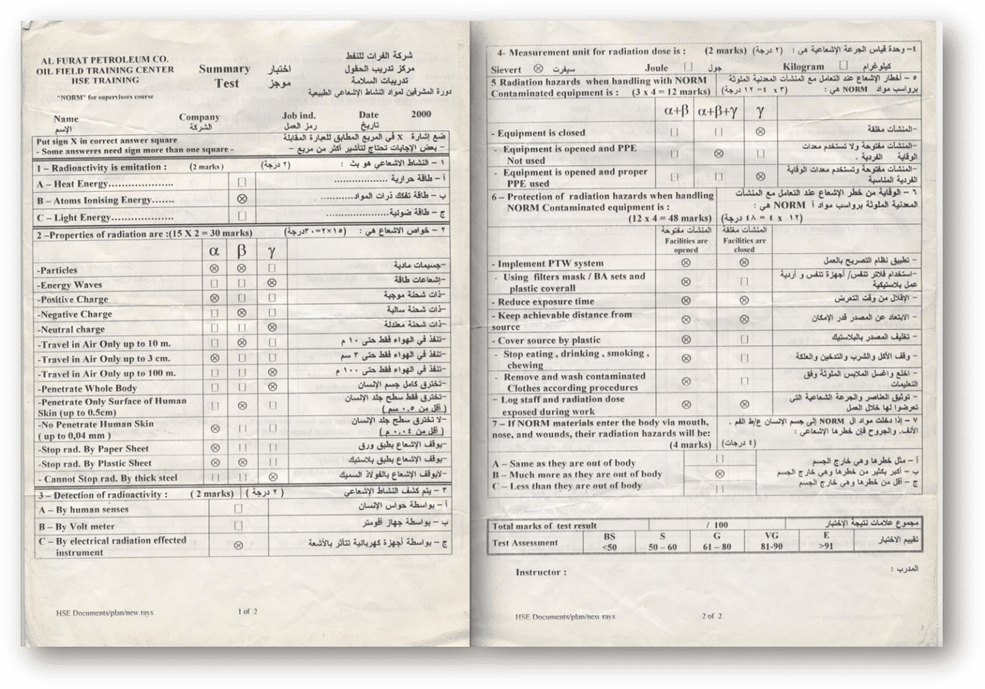 AL FURAT PETROLEUM CO.
OIL FIELD TRAINING CENTER
HSE TRAINING
"NORM" for supervisors course
Summary
Test
اختبار
موجز
شركة الفرات للنفط
مركز تدريب الحقول
تدريبات السلامة
دورة المشرفين لمواد النشاط الإشعاعي الطبيعية
Name Company Job ind. Date 2000
الإسم الشركة رمز العمل تاريخ
Put sign X in correct answer square ضع إشارة X في المربع المطابق للعبارة المقابلة
- Some answeres need sign more than one square - – بعض الإجابات تحتاج لتأشير أكثر من مربع –
1 – Radioactivity is emitation : (2 marks) (٢ درجة) ١ – النشاط الاشعاعي هو بث :
A – Heat Energy.................... □ أ – طاقة حرارية ....................
B – Atoms Ionising Energy....... ⊗ ب – طاقة تفكك ذرات المواد............
C – Light Energy.................... □ ج – طاقة ضوئية....................
2 –Properties of radiation are :(15 X 2 = 30 marks) (١٥×٢=٣٠درجة) ٢ – خواص الاشعاع هي :
α β γ
-Particles ⊗ ⊗ □ –جسيمات مادية
-Energy Waves □ □ ⊗ –إشعاعات طاقة
-Positive Charge ⊗ □ □ –ذات شحنة موجبة
-Negative Charge □ ⊗ □ –ذات شحنة سالبة
-Neutral charge □ □ ⊗ –ذات شحنة معتدلة
-Travel in Air Only up to 10 m. □ ⊗ □ –تنفذ في الهواء فقط حتى ١٠ م
-Travel in Air Only up to 3 cm. ⊗ □ □ –تنفذ في الهواء فقط حتى ٣ سم
-Travel in Air Only up to 100 m. □ □ ⊗ –تنفذ في الهواء فقط حتى ١٠٠ م
-Penetrate Whole Body □ □ ⊗ –تخترق كامل جسم الإنسان
-Penetrate Only Surface of Human □ ⊗ □ –تخترق فقط سطح جلد الإنسان
Skin (up to 0.5cm) (أقل من ٠,٥ سم)
-No Penetrate Human Skin ⊗ □ □ –لا تخترق سطح جلد الإنسان
( up to 0,04 mm ) (أقل من ٠,٠٤ م)
-Stop rad. By Paper Sheet ⊗ □ □ –يوقف الإشعاع بطبق ورق
-Stop rad. By Plastic Sheet ⊗ ⊗ □ –يوقف الإشعاع بطبق بلاستيك
- Cannot Stop rad. By thick steel □ □ ⊗ –لايوقف الإشعاع بالفولاذ السميك
3 – Detection of radioactivity : ( 2 marks) ( ٢ درجة) ٣ – يتم كشف النشاط الإشعاعي
A – By human senses □ أ – بواسطة حواس الإنسان
B – By Volt meter □ ب – بواسطة جهاز أفومتر
C – By electrical radiation effected ⊗ ج – بواسطة أجهزة كهربائية تتأثر بالأشعة
instrument
HSE Documents/plan/new rays 1 of 2
4- Measurement unit for radiation dose is : (2 marks) (٢ درجة) ٤– وحدة قياس الجرعة الإشعاعية هي :
Sievert ⊗ سيفرت Joule □ جول Kilogram □ كيلوغرام
5 Radiation hazards when handling with NORM ٥ – أخطار الإشعاع عند التعامل مع المنشآت المعدنية الملوثة
Contaminated equipment is : (3 x 4 = 12 marks) (٣ x ٤ = ١٢ درجة) برواسب مواد NORM هي :
α+β α+β+γ γ
- Equipment is closed □ □ ⊗ –المنشآت مغلقة
- Equipment is opened and PPE □ ⊗ □ –المنشآت مفتوحة ولا تستخدم معدات
Not used الوقاية الفردية .
- Equipment is opened and proper □ □ ⊗ –المنشآت مفتوحة وتستخدم معدات الوقاية
PPE used الفردية المناسبة
6 – Protection of radiation hazards when handling ٦ – الوقاية من خطر الإشعاع عند التعامل مع المنشآت
NORM Contaminated equipment is : المعدنية الملوثة برواسب مواد NORM هي :
(12 x 4 = 48 marks) (١٢ x ٤ = ٤٨ درجة)
المنشآت مفتوحة المنشآت مغلقة
Facilities are opened Facilities are closed
- Implement PTW system ⊗ ⊗ – تطبيق نظام التصريح بالعمل
- Using filters mask / BA sets and ⊗ □ –استخدام فلاتر تنفس/ أجهزة تنفس و أردية
plastic coverall عمل بلاستيكية
- Reduce exposure time ⊗ ⊗ – الإقلال من وقت التعرض
- Keep achievable distance from ⊗ ⊗ – الابتعاد عن المصدر قدر الإمكان
source
- Cover source by plastic ⊗ □ – تغليف المصدر بالبلاستيك
- Stop eating , drinking , smoking , ⊗ □ – وقف الأكل والشرب والتدخين والعلكة
chewing
- Remove and wash contaminated ⊗ □ – اخلع واغسل الملابس الملوثة وفق
Clothes according procedures التعليمات
– Log staff and radiation dose ⊗ ⊗ – توثيق العناصر والجرعة الشعاعية التي
exposed during work تعرضوا لها خلال العمل
7 – If NORM materials enter the body via mouth, ٧ – إذا دخلت مواد ال NORM إلى جسم الإنسان ع/ط الفم ,
nose, and wounds, their radiation hazards will be: الأنف, والجروح فإن خطرها الإشعاعي :
(4 marks) (٤ درجات)
A – Same as they are out of body □ أ – مثل خطرها وهي خارج الجسم
B – Much more as they are out of body ⊗ ب – أكبر بكثير من خطرها وهي خارج الجسم
C – Less than they are out of body □ ج – أقل من خطرها وهي خارج الجسم
Total marks of test result / 100 مجموع علامات نتيجة الإختبار
Test Assessment BS S G VG E تقييم الاختبار
<50 50 – 60 61 – 80 81-90 >91
Instructor : المدرب :
HSE Documents/plan/new rays 2 of 2